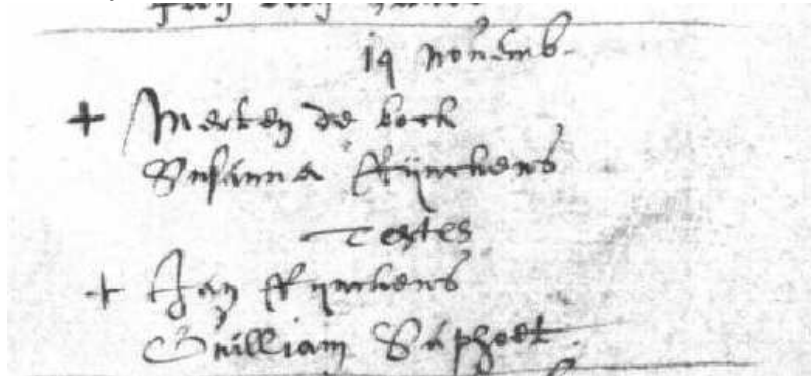 19 novemb.
+ Merten de bock
Susanna Rijnckens
Testes
+ Jan Rijnckens
Guilliam Saphoet.